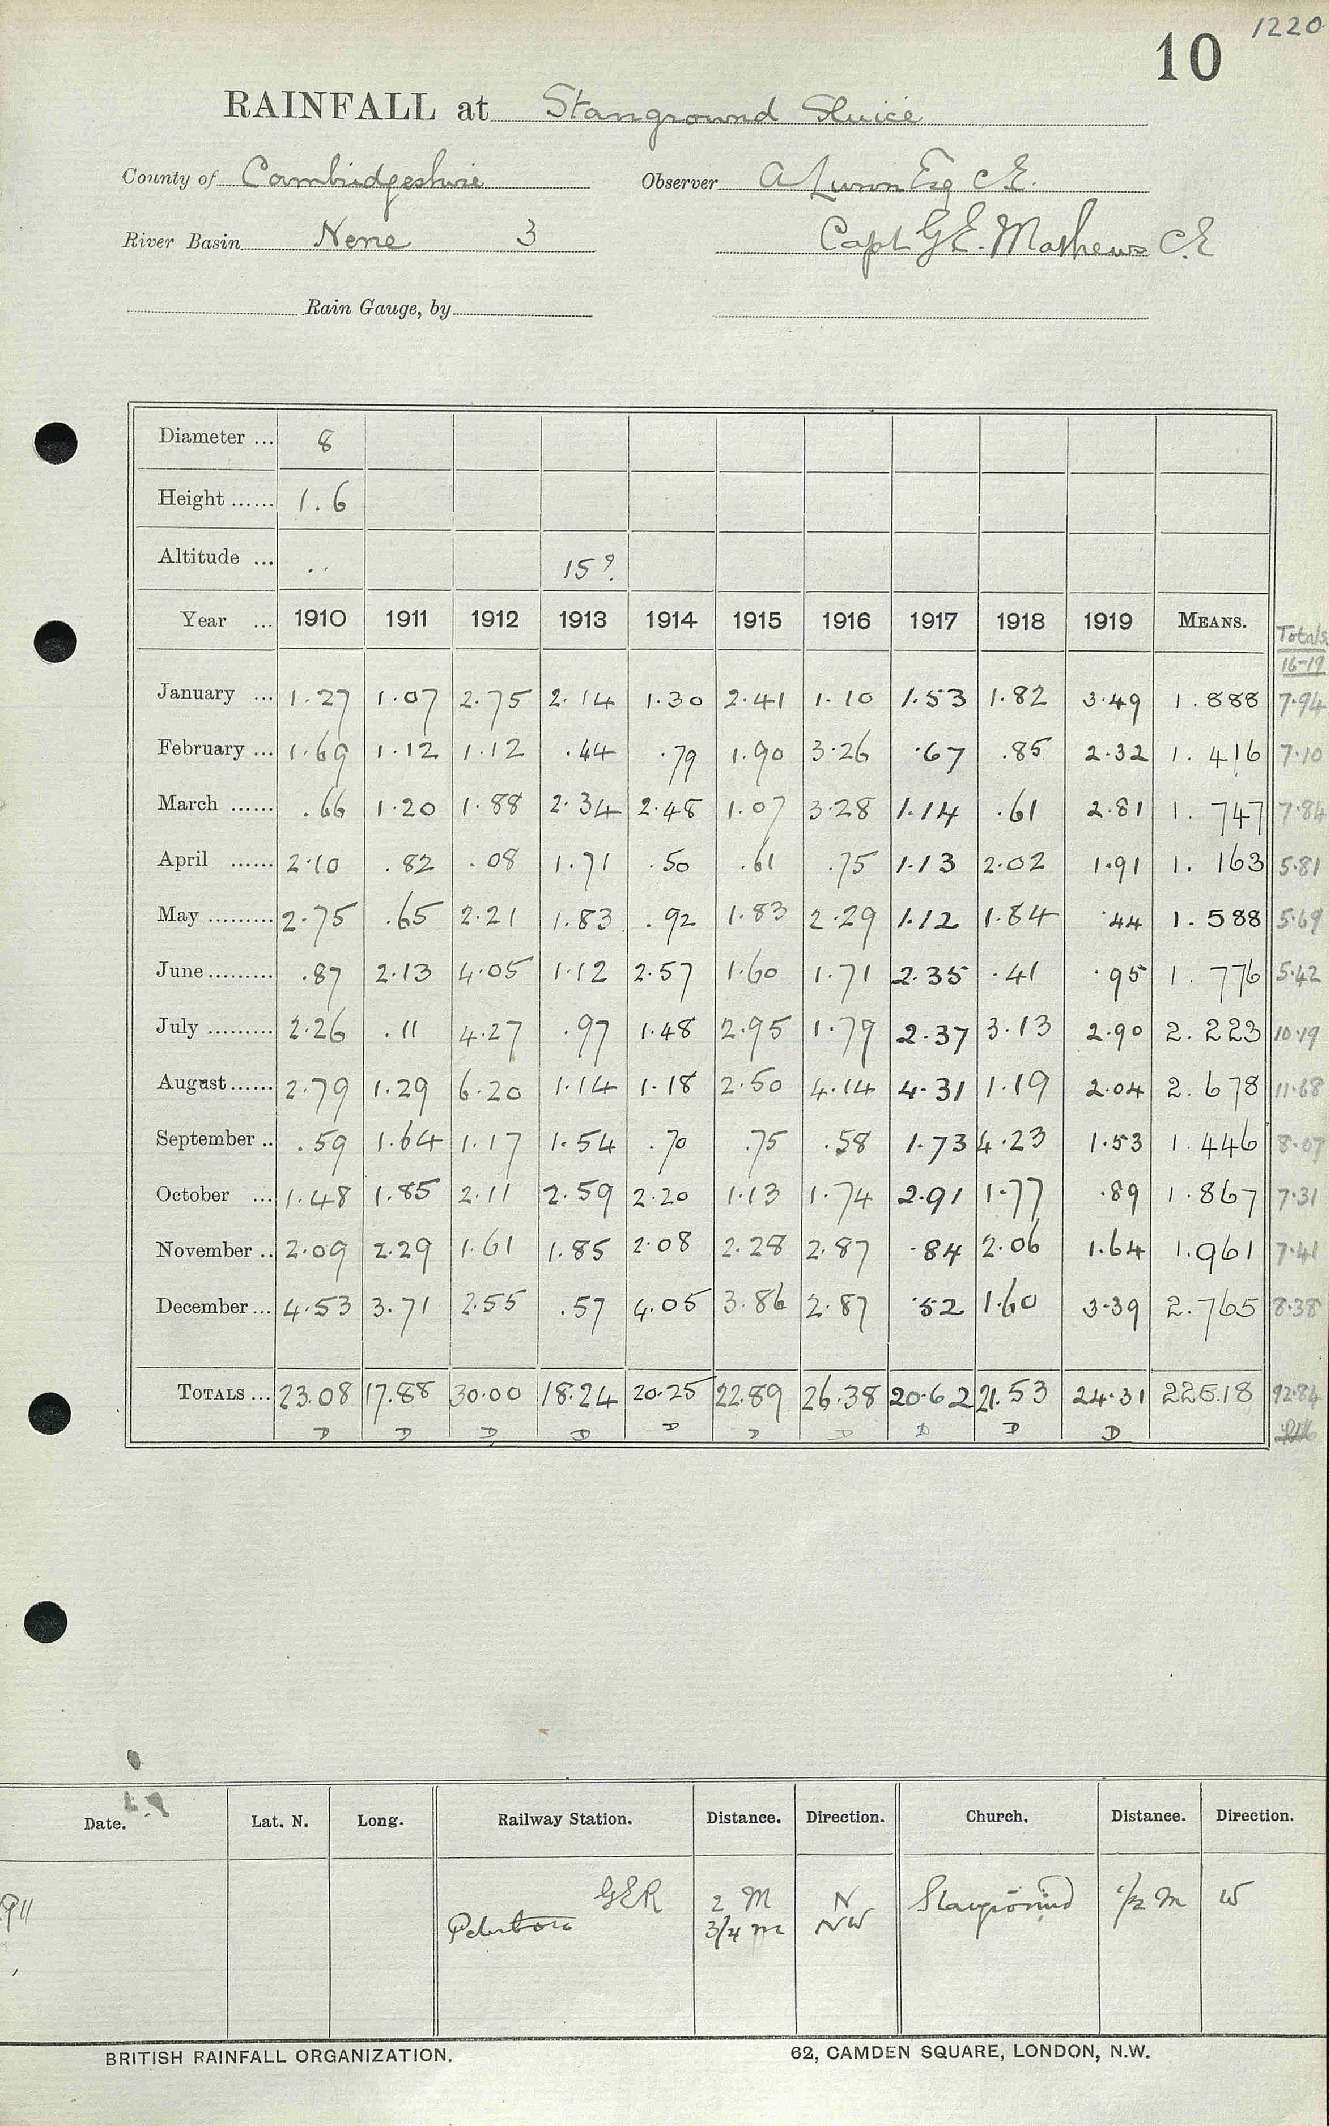 1220
10
RAINFALL at Stanground Sluice
County of Cambridgeshire Observer A Lunn Esq C.E.
River Basin Nene 3 Capt G.E. Mathews C.E
Rain Gauge, by
Diameter ... 8
Height ...... 1.6
Altitude ... .. 15?
Year ... 1910 1911 1912 1913 1914 1915 1916 1917 1918 1919 MEANS. Totals 16-19
January ... 1.27 1.07 2.75 2.14 1.30 2.41 1.10 1.53 1.82 3.49 1.888 7.94
February ... 1.69 1.12 1.12 .44 .79 1.90 3.26 .67 .85 2.32 1.416 7.10
March ...... .66 1.20 1.88 2.34 2.48 1.07 3.28 1.14 .61 2.81 1.747 7.84
April ...... 2.10 .82 .08 1.71 .50 .61 .75 1.13 2.02 1.91 1.163 5.81
May ......... 2.75 .65 2.21 1.83 .92 1.83 2.29 1.12 1.84 .44 1.588 5.69
June ......... .87 2.13 4.05 1.12 2.57 1.60 1.71 2.35 .41 .95 1.776 5.42
July ......... 2.26 .11 4.27 .97 1.48 2.95 1.79 2.37 3.13 2.90 2.223 10.19
August ...... 2.79 1.29 6.20 1.14 1.18 2.50 4.14 4.31 1.19 2.04 2.678 11.68
September .. .59 1.64 1.17 1.54 .70 .75 .58 1.73 4.23 1.53 1.446 8.07
October ... 1.48 1.85 2.11 2.59 2.20 1.13 1.74 2.91 1.77 .89 1.867 7.31
November .. 2.09 2.29 1.61 1.85 2.08 2.28 2.87 .84 2.06 1.64 1.961 7.41
December ... 4.53 3.71 2.55 .57 4.05 3.86 2.87 .52 1.60 3.39 2.765 8.38
TOTALS ... 23.08 17.88 30.00 18.24 20.25 22.89 26.38 20.62 21.53 24.31 22518 92.84
D D D D D D D D D D
Date. Lat. N. Long. Railway Station. Distance. Direction. Church. Distance. Direction.
GER 2 M N Stanground 1/2 M W
Peterboro 3/4 m NW
BRITISH RAINFALL ORGANIZATION. 62, CAMDEN SQUARE, LONDON, N.W.